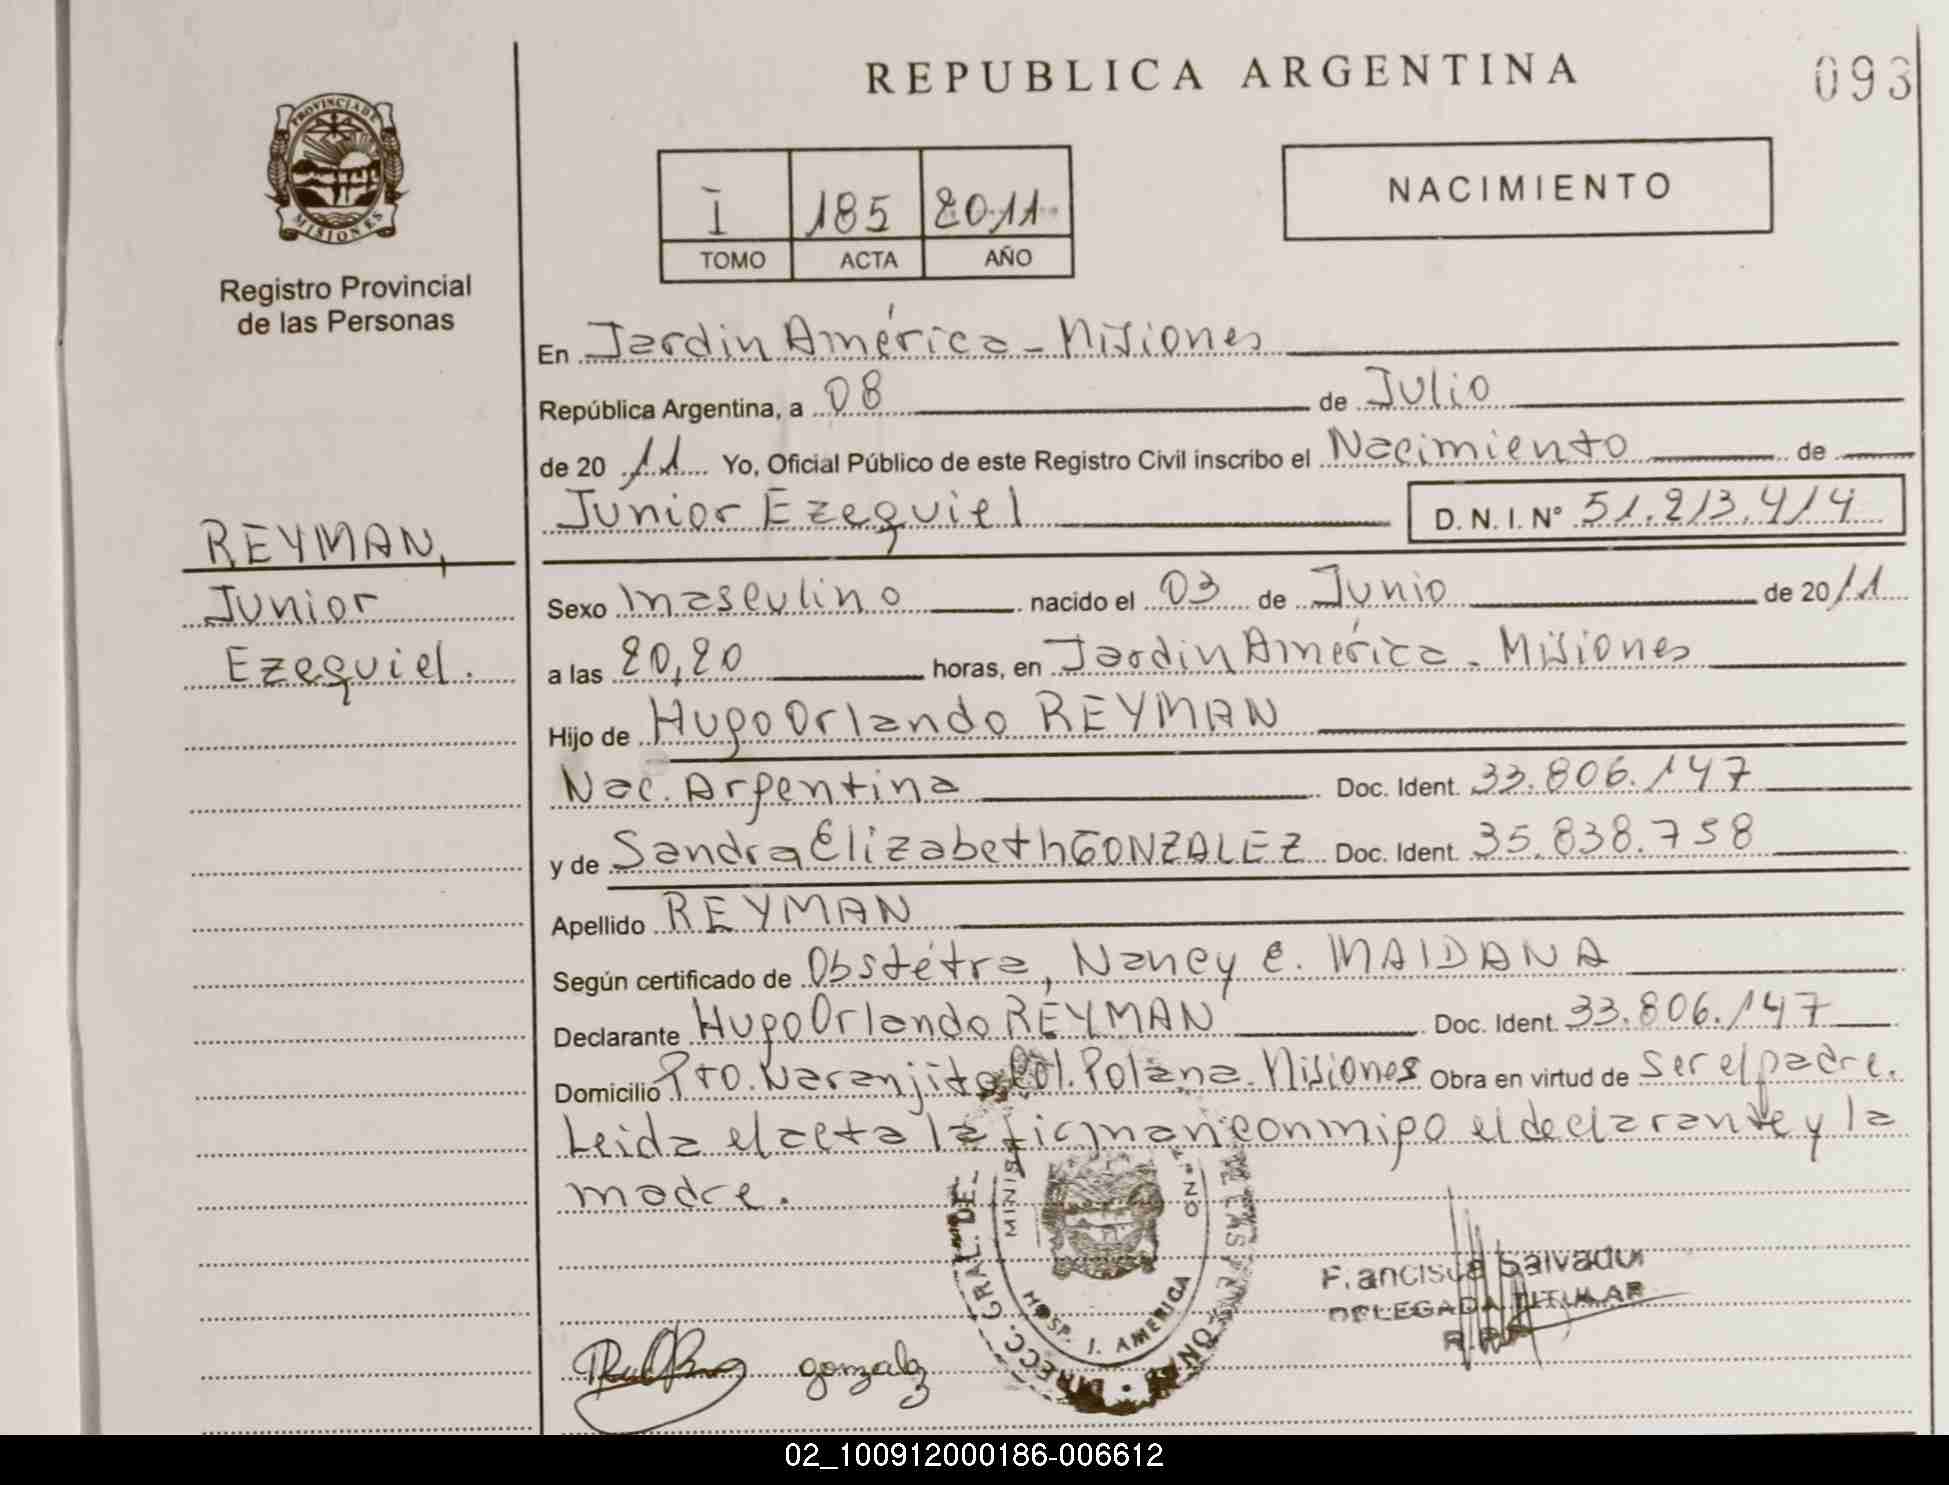 REPUBLICA ARGENTINA
093
PROVINCIA DE
MISIONES
Registro Provincial
de las Personas
I 185 2011
TOMO ACTA AÑO
NACIMIENTO
En Jardin América - Misiones
República Argentina, a 08 de Julio
de 20 11 Yo, Oficial Público de este Registro Civil inscribo el Nacimiento de
Junior Ezequiel D.N.I. Nº 51.213.414
REYMAN,
Junior
Ezequiel.
Sexo Masculino nacido el 03 de Junio de 20 11
a las 20,20 horas, en Jardin América - Misiones
Hijo de Hugo Orlando REYMAN
Nac. Argentina Doc. Ident. 33.806.147
y de Sandra Elizabeth GONZALEZ Doc. Ident. 35.838.758
Apellido REYMAN
Según certificado de Obstétra, Nancy E. MAIDANA
Declarante Hugo Orlando REYMAN Doc. Ident. 33.806.147
Domicilio Pto. Naranjito Col. Polana - Misiones Obra en virtud de ser el padre.
Leida el acta la firman conmigo el declarante y la
madre.
DIRECC. GRAL. DE LAS PERSONAS
HOSP. J. AMERICA
Francisca Salvador
DELEGADA TITULAR
gonzalz
02_100912000186-006612